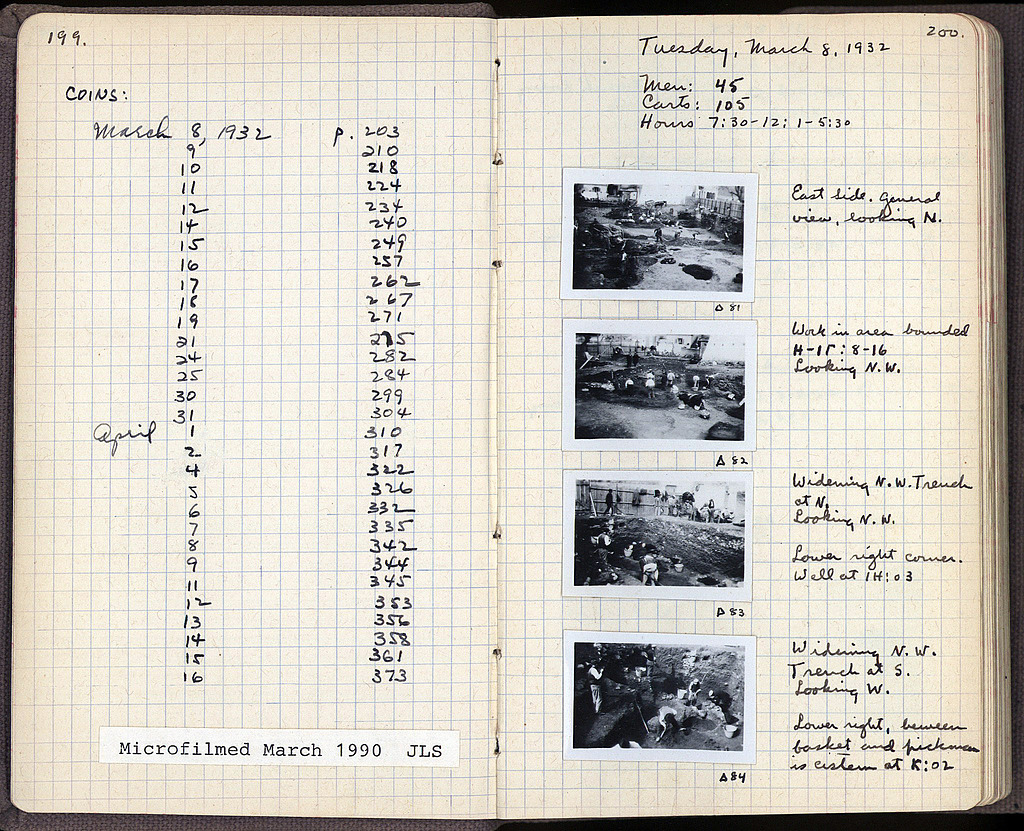 199.
COINS:
March 8, 1932 p. 203
9 210
10 218
11 224
12 234
14 240
15 249
16 257
17 262
18 267
19 271
21 275
24 282
25 284
30 299
31 304
April 1 310
2 317
4 322
5 326
6 332
7 335
8 342
9 344
11 345
12 353
13 356
14 358
15 361
16 373
Microfilmed March 1990 JLS
200.
Tuesday, March 8, 1932
Men: 45
Carts: 105
Hours 7:30-12; 1-5:30
East side. General
view, looking N.
Δ 81
Work in area bounded
8-16
Looking N.W.
Δ 82
Widening N.W. Trench
at N.
Looking N.W.
Lower right corner.
Well at 1H:03
Δ 83
Widening N.W.
Trench at S.
Looking W.
Lower right, beween
basket and pickman
is cistern at K:02
Δ 84